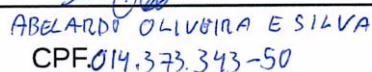 ABELARDO OLIVEIRA E SILVA
CPF.014.373.343-50